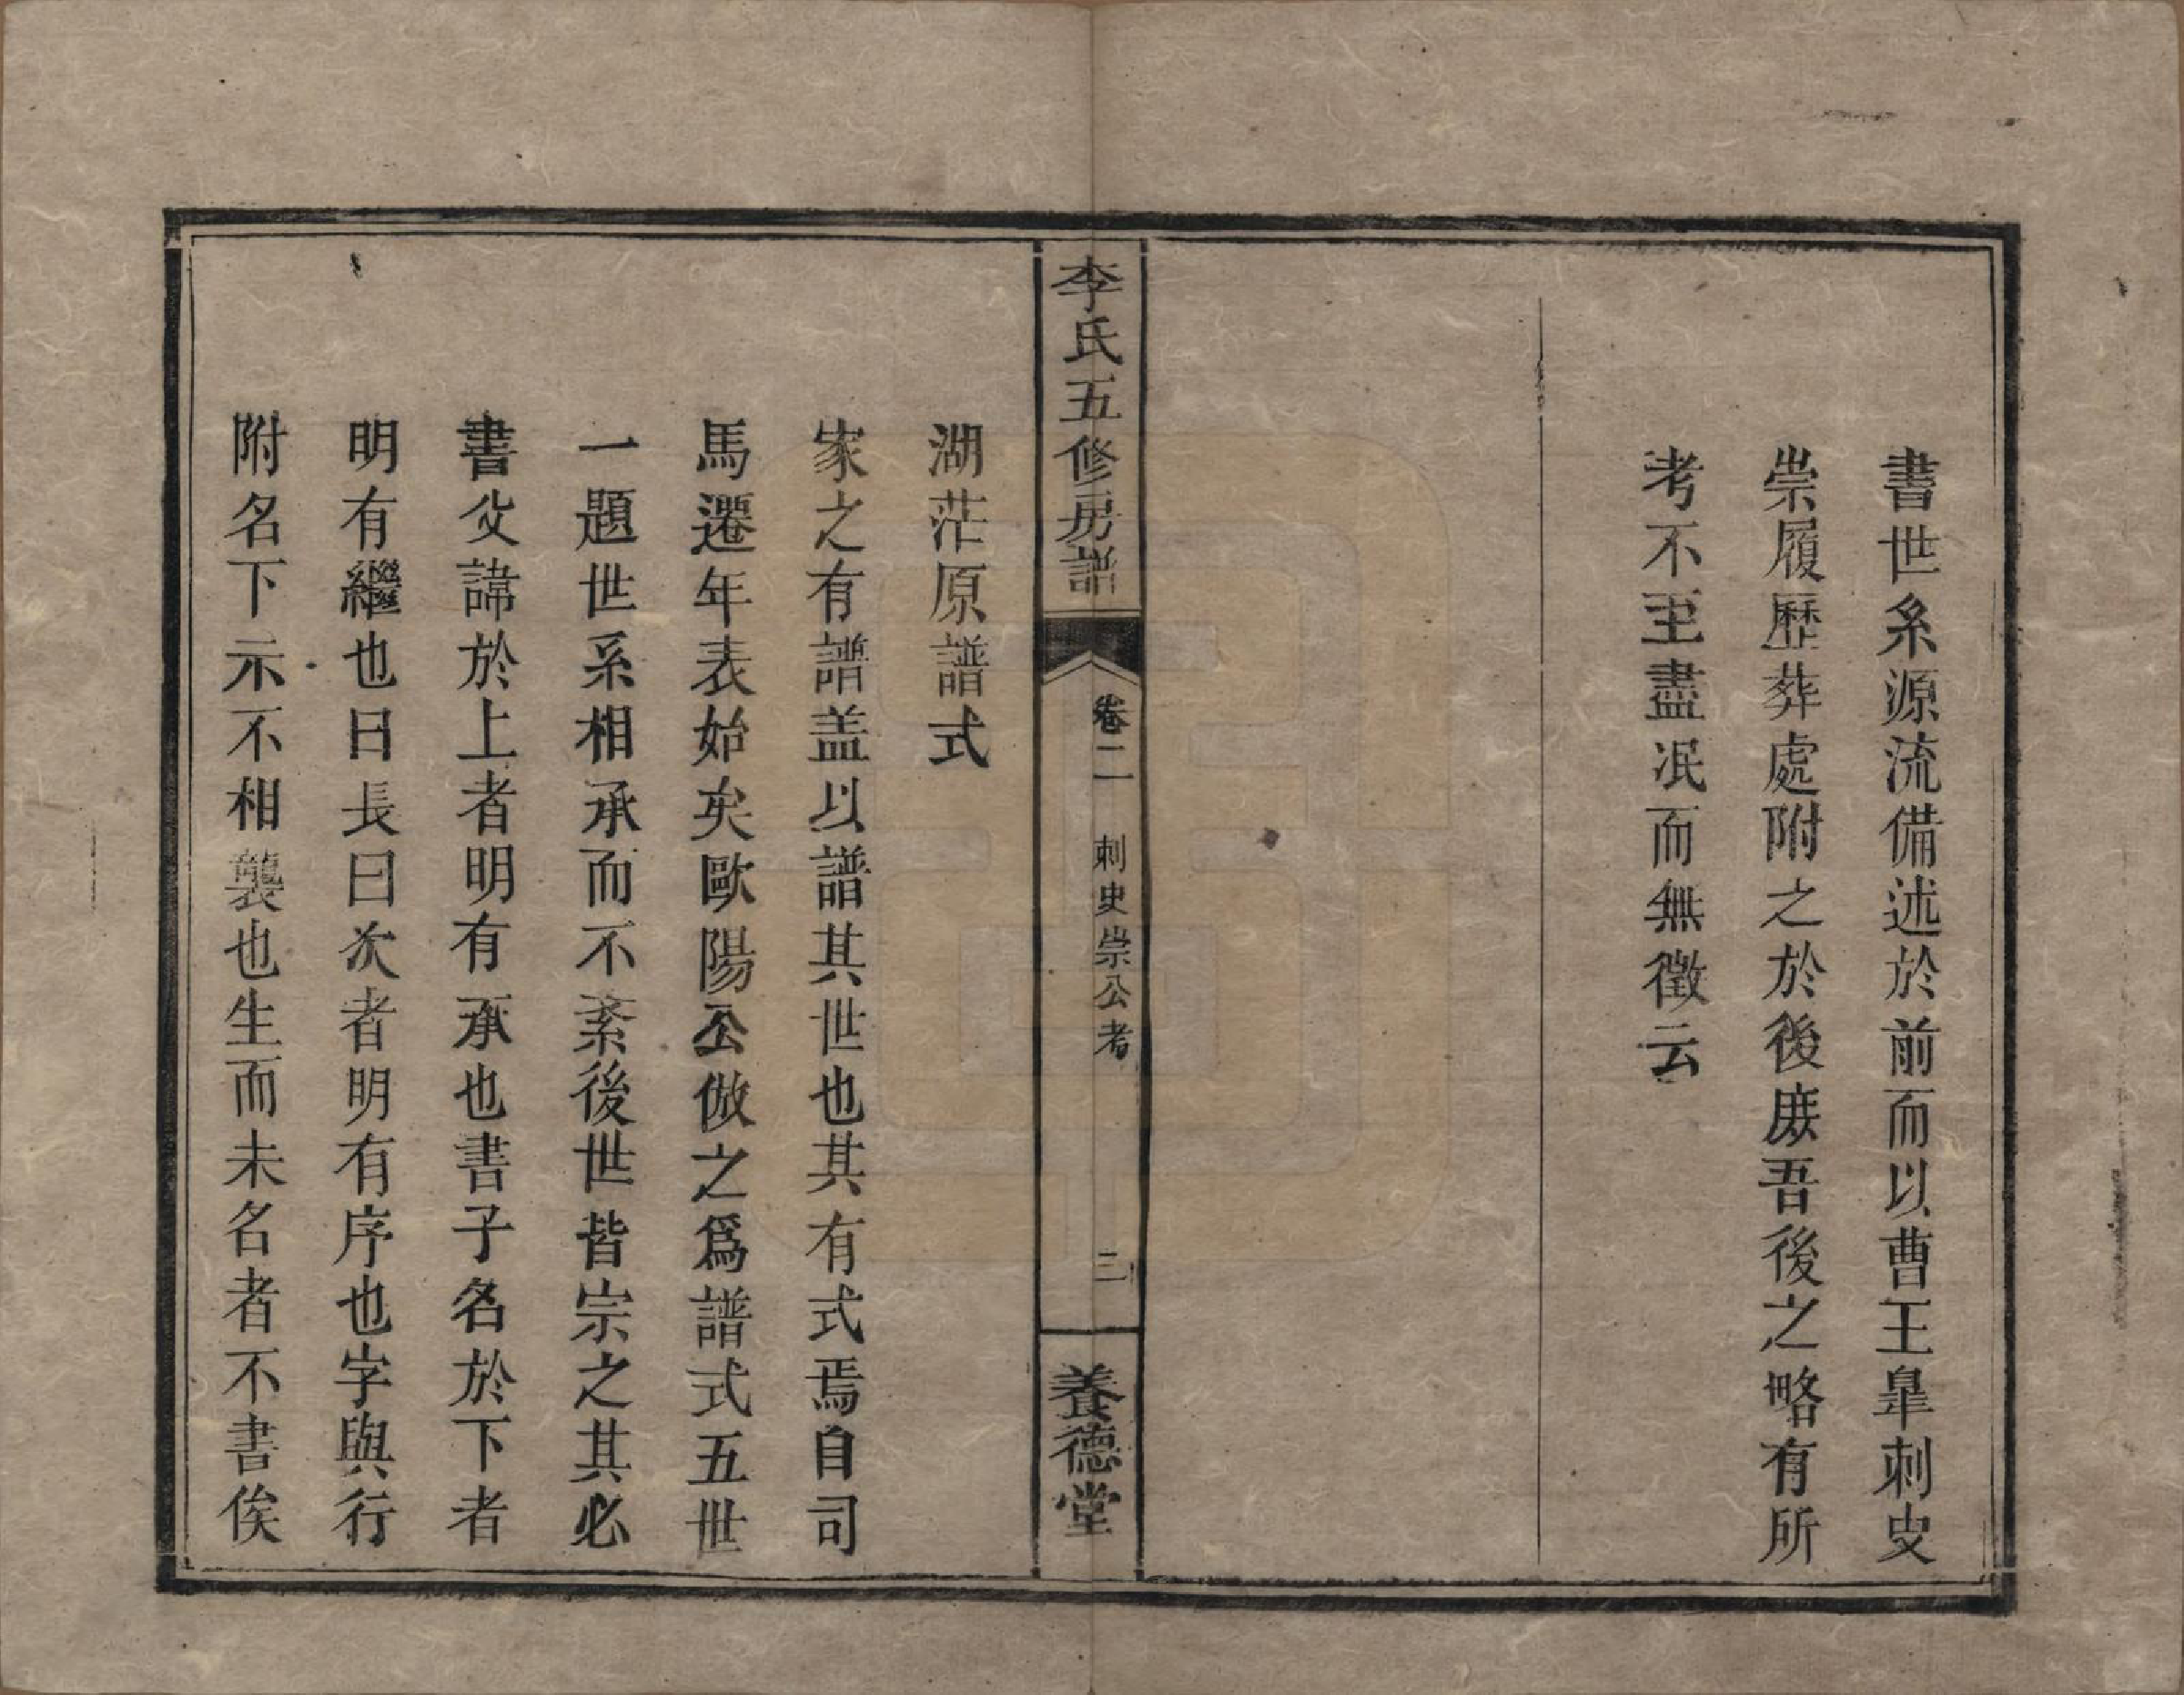 書世系源流備述於前而以曹王皐刺史
崇履歷葬處附之於後庻吾後之略有所
考不至盡泯而無徵云
李氏五修房譜
卷二
刺史崇公考
三
養德堂
湖茫原譜式
家之有譜盖以譜其世也其有式焉自司
馬遷年表始矣歐陽公倣之爲譜式五世
一題世系相承而不紊後世皆宗之其必
書父諱於上者明有承也書子名於下者
明有繼也曰長曰次者明有序也字與行
附名下示不相襲也生而未名者不書俟